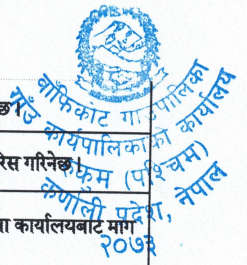 बाँफिकोट गाउँपालिका
गाउँ कार्यपालिकाको कार्यालय
रुकुम (पश्चिम)
कर्णाली प्रदेश, नेपाल
२०७३
छ।
रेस गरिनेछ।
कार्यालयबाट माग